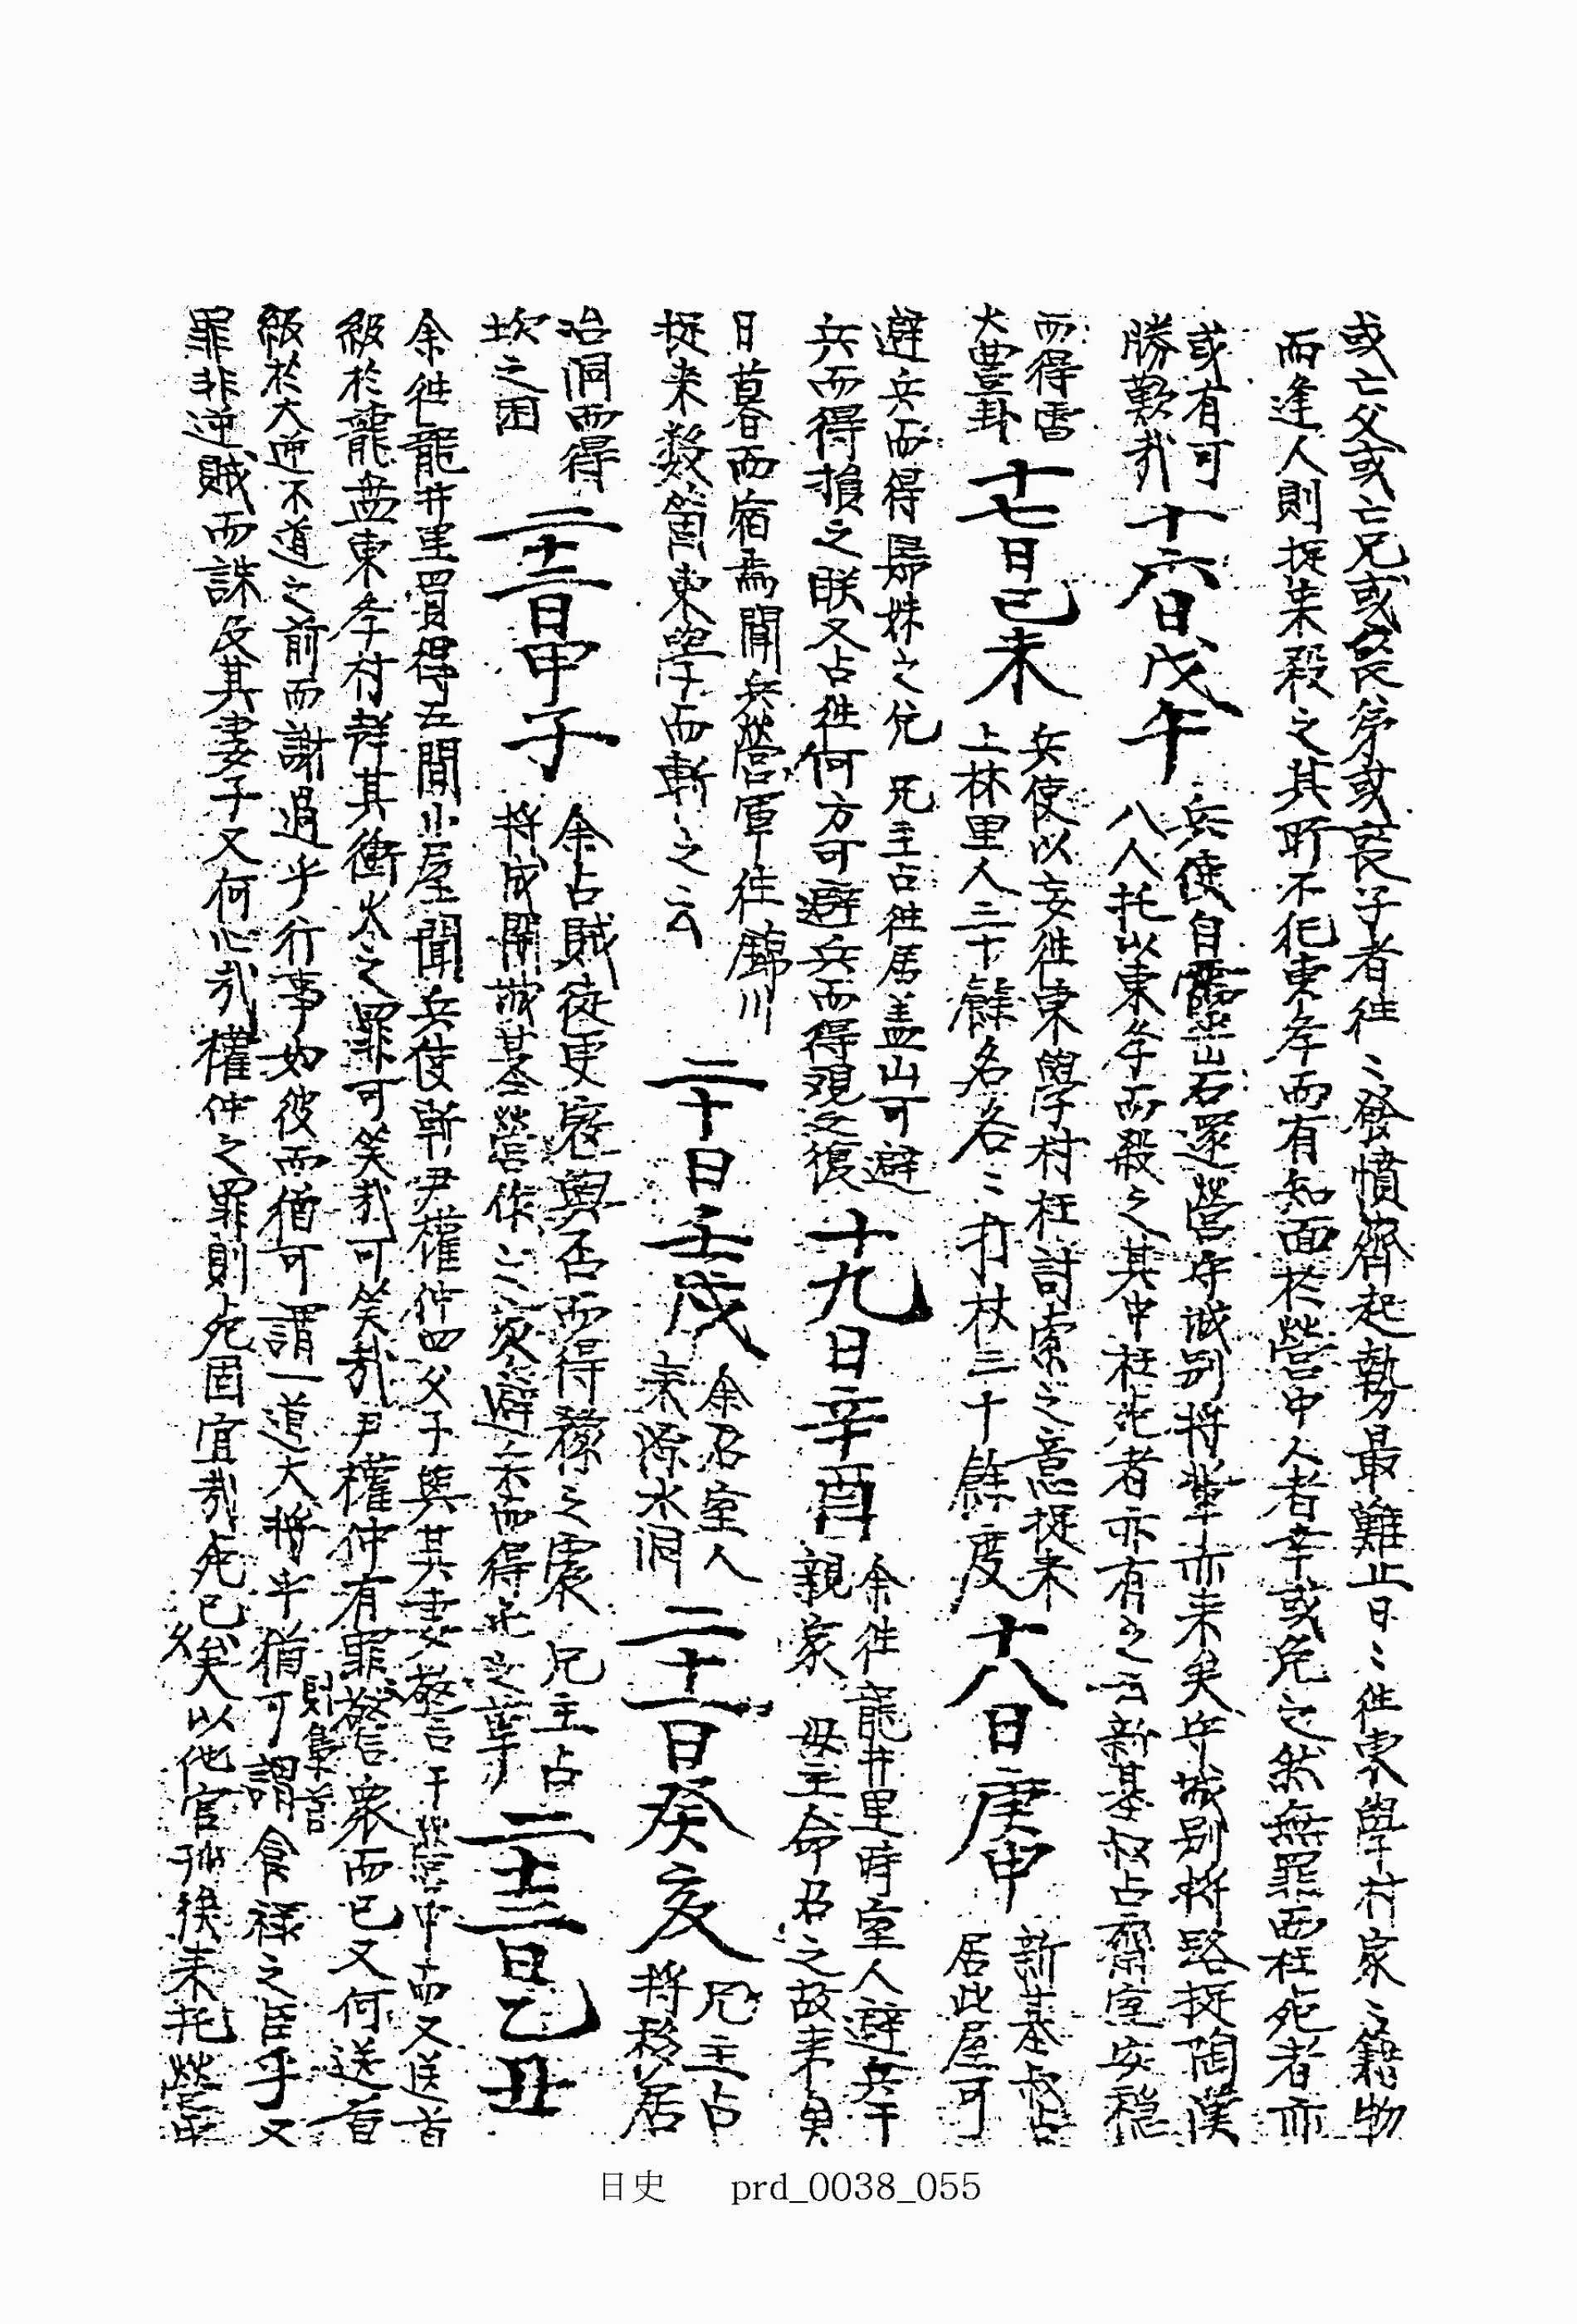 或亡父或亡兄或喪弟或喪子者往〻發憤齊起勢最難止日〻往東學村家〻籍物
而逢人則捉来殺之其所不犯東学而有知面於營中人者幸或免之然無罪而枉死者亦
或有可
勝歎哉
十六日戊午
兵使自霽岩還營守城別將輩亦来矣守城別將路捉陶漢
八人托以東学而殺之其中枉死者亦有之云新基叔占齋室安穏
而得晋
大豊卦
十七日己未
兵使以妄徃東學村枉討索之意捉来
上林里人三十餘名名〻打杖三十餘度
十八日庚申
新基叔占
居此屋可
避兵而得歸妹之兌 兄主占徃居盖山可避
兵而得損之睽又占徃何方可避兵而得觀之復
十九日辛酉
余徃龍井里時室人避兵于
親家 母主命召之故来與
日暮而宿焉聞兵營軍徃錦川
捉来数箇東學而斬之云
二十日壬戌
余召室人
来源水洞
二十一日癸亥
兄主占
將移居
冶洞而得
坎之困
二十二日甲子
余占賊徒更寇與否而得豫之震 兄主占
將成開城基營作亡命避柒而得屯之萃
二十三日乙丑
余徃龍井里買得五間小屋聞兵使斬尹權仲四父子與其妻警于營中而又送首
級於龍盘東学村群其衝火之罪可笑哉可笑哉尹權仲有罪則梟警衆而已又何送首
級於大逆不道之前而謝過乎行事如彼而猶可謂一道大將乎猶可謂食祿之臣乎又
罪非逆賊而誅及其妻子又何心哉權仲之罪則死固宜哉死已矣以他官孙後来托營中
日史 prd_0038_055